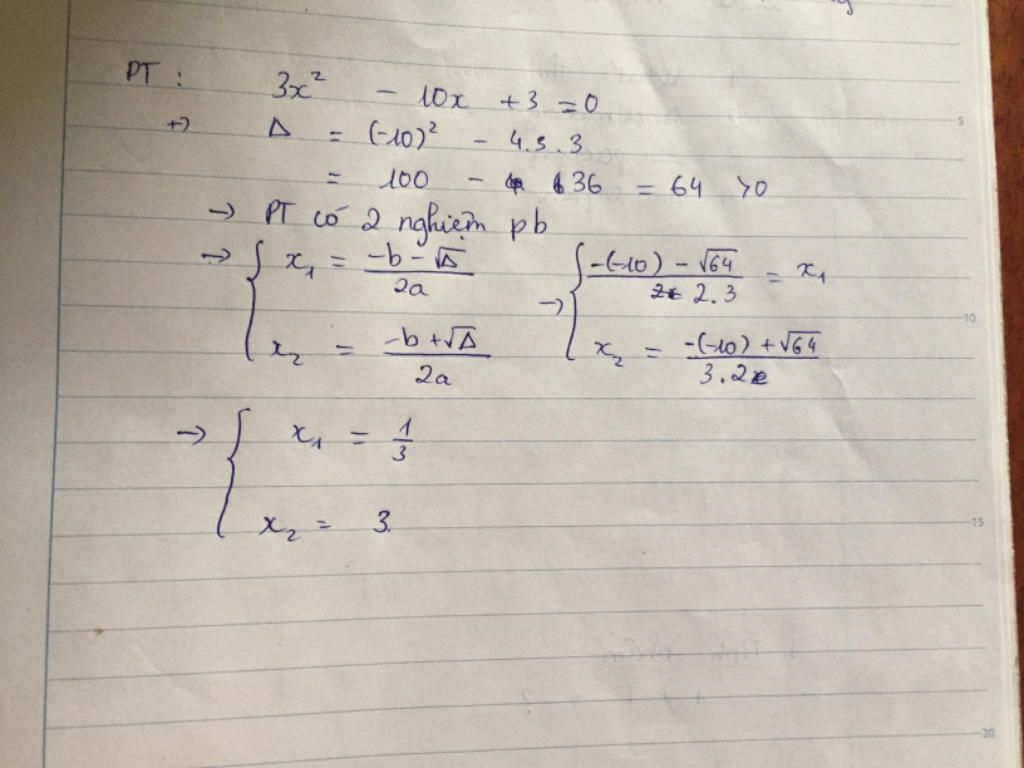 PT : 3x² - 10x + 3 = 0
+) Δ = (-10)² - 4.3.3
= 100 - 36 = 64 > 0
→ PT có 2 nghiệm pb
→ { x₁ = (-b - √Δ) / 2a → { (-(-10) - √64) / 2.3 = x₁
x₂ = (-b + √Δ) / 2a x₂ = (-(-10) + √64) / 3.2
→ { x₁ = 1/3
x₂ = 3.
5
10
15
20